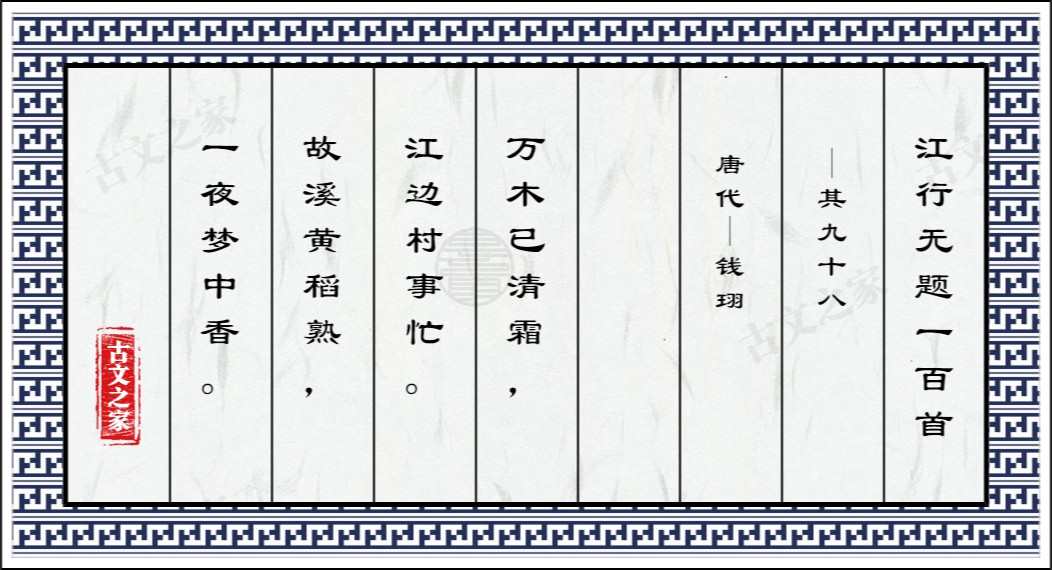 江行无题一百首
—其九十八
唐代—钱珝
万木已清霜，
江边村事忙。
故溪黄稻熟，
一夜梦中香。
古文之家
古文之家
古文之家